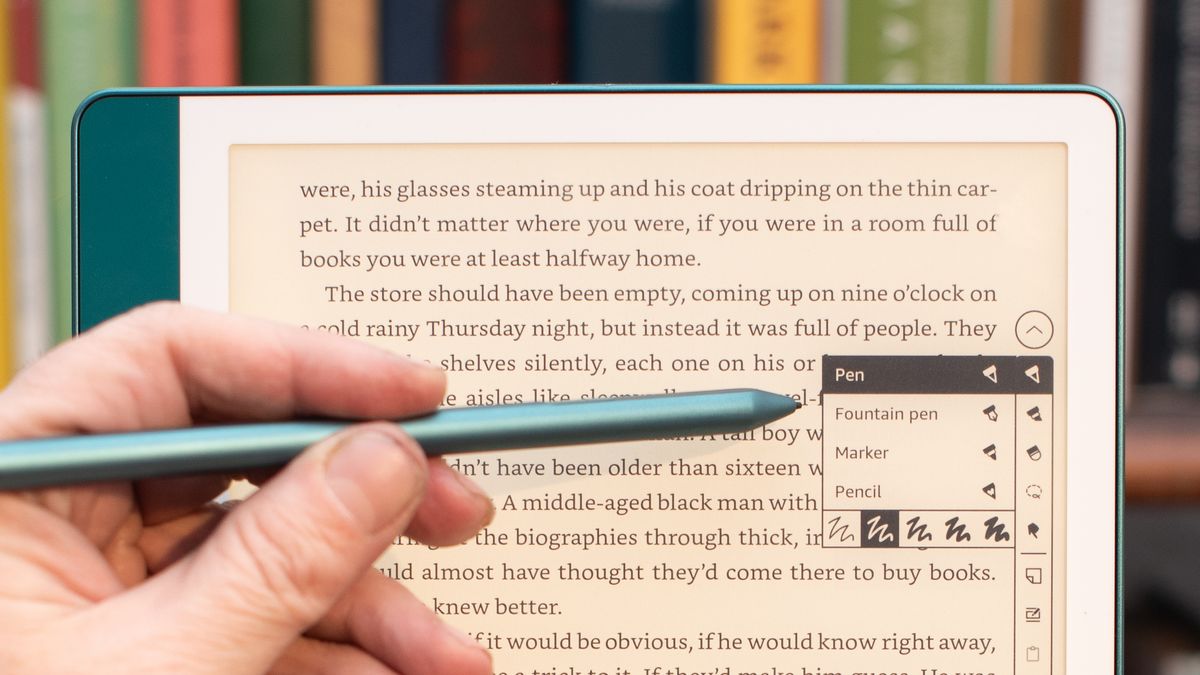 were, his glasses steaming up and his coat dripping on the thin car-
pet. It didn’t matter where you were, if you were in a room full of
books you were at least halfway home.
The store should have been empty, coming up on nine o’clock on
a cold rainy Thursday night, but instead it was full of people. They
shelves silently, each one on his or
aisles like
boy
have been older than sixteen
A middle-aged black man with
the biographies through thick,
almost have thought they’d come there to buy books.
knew better.
if it would be obvious, if he would know right away,
a trick to it. If they’d make him guess. He was
Pen
Fountain pen
Marker
Pencil